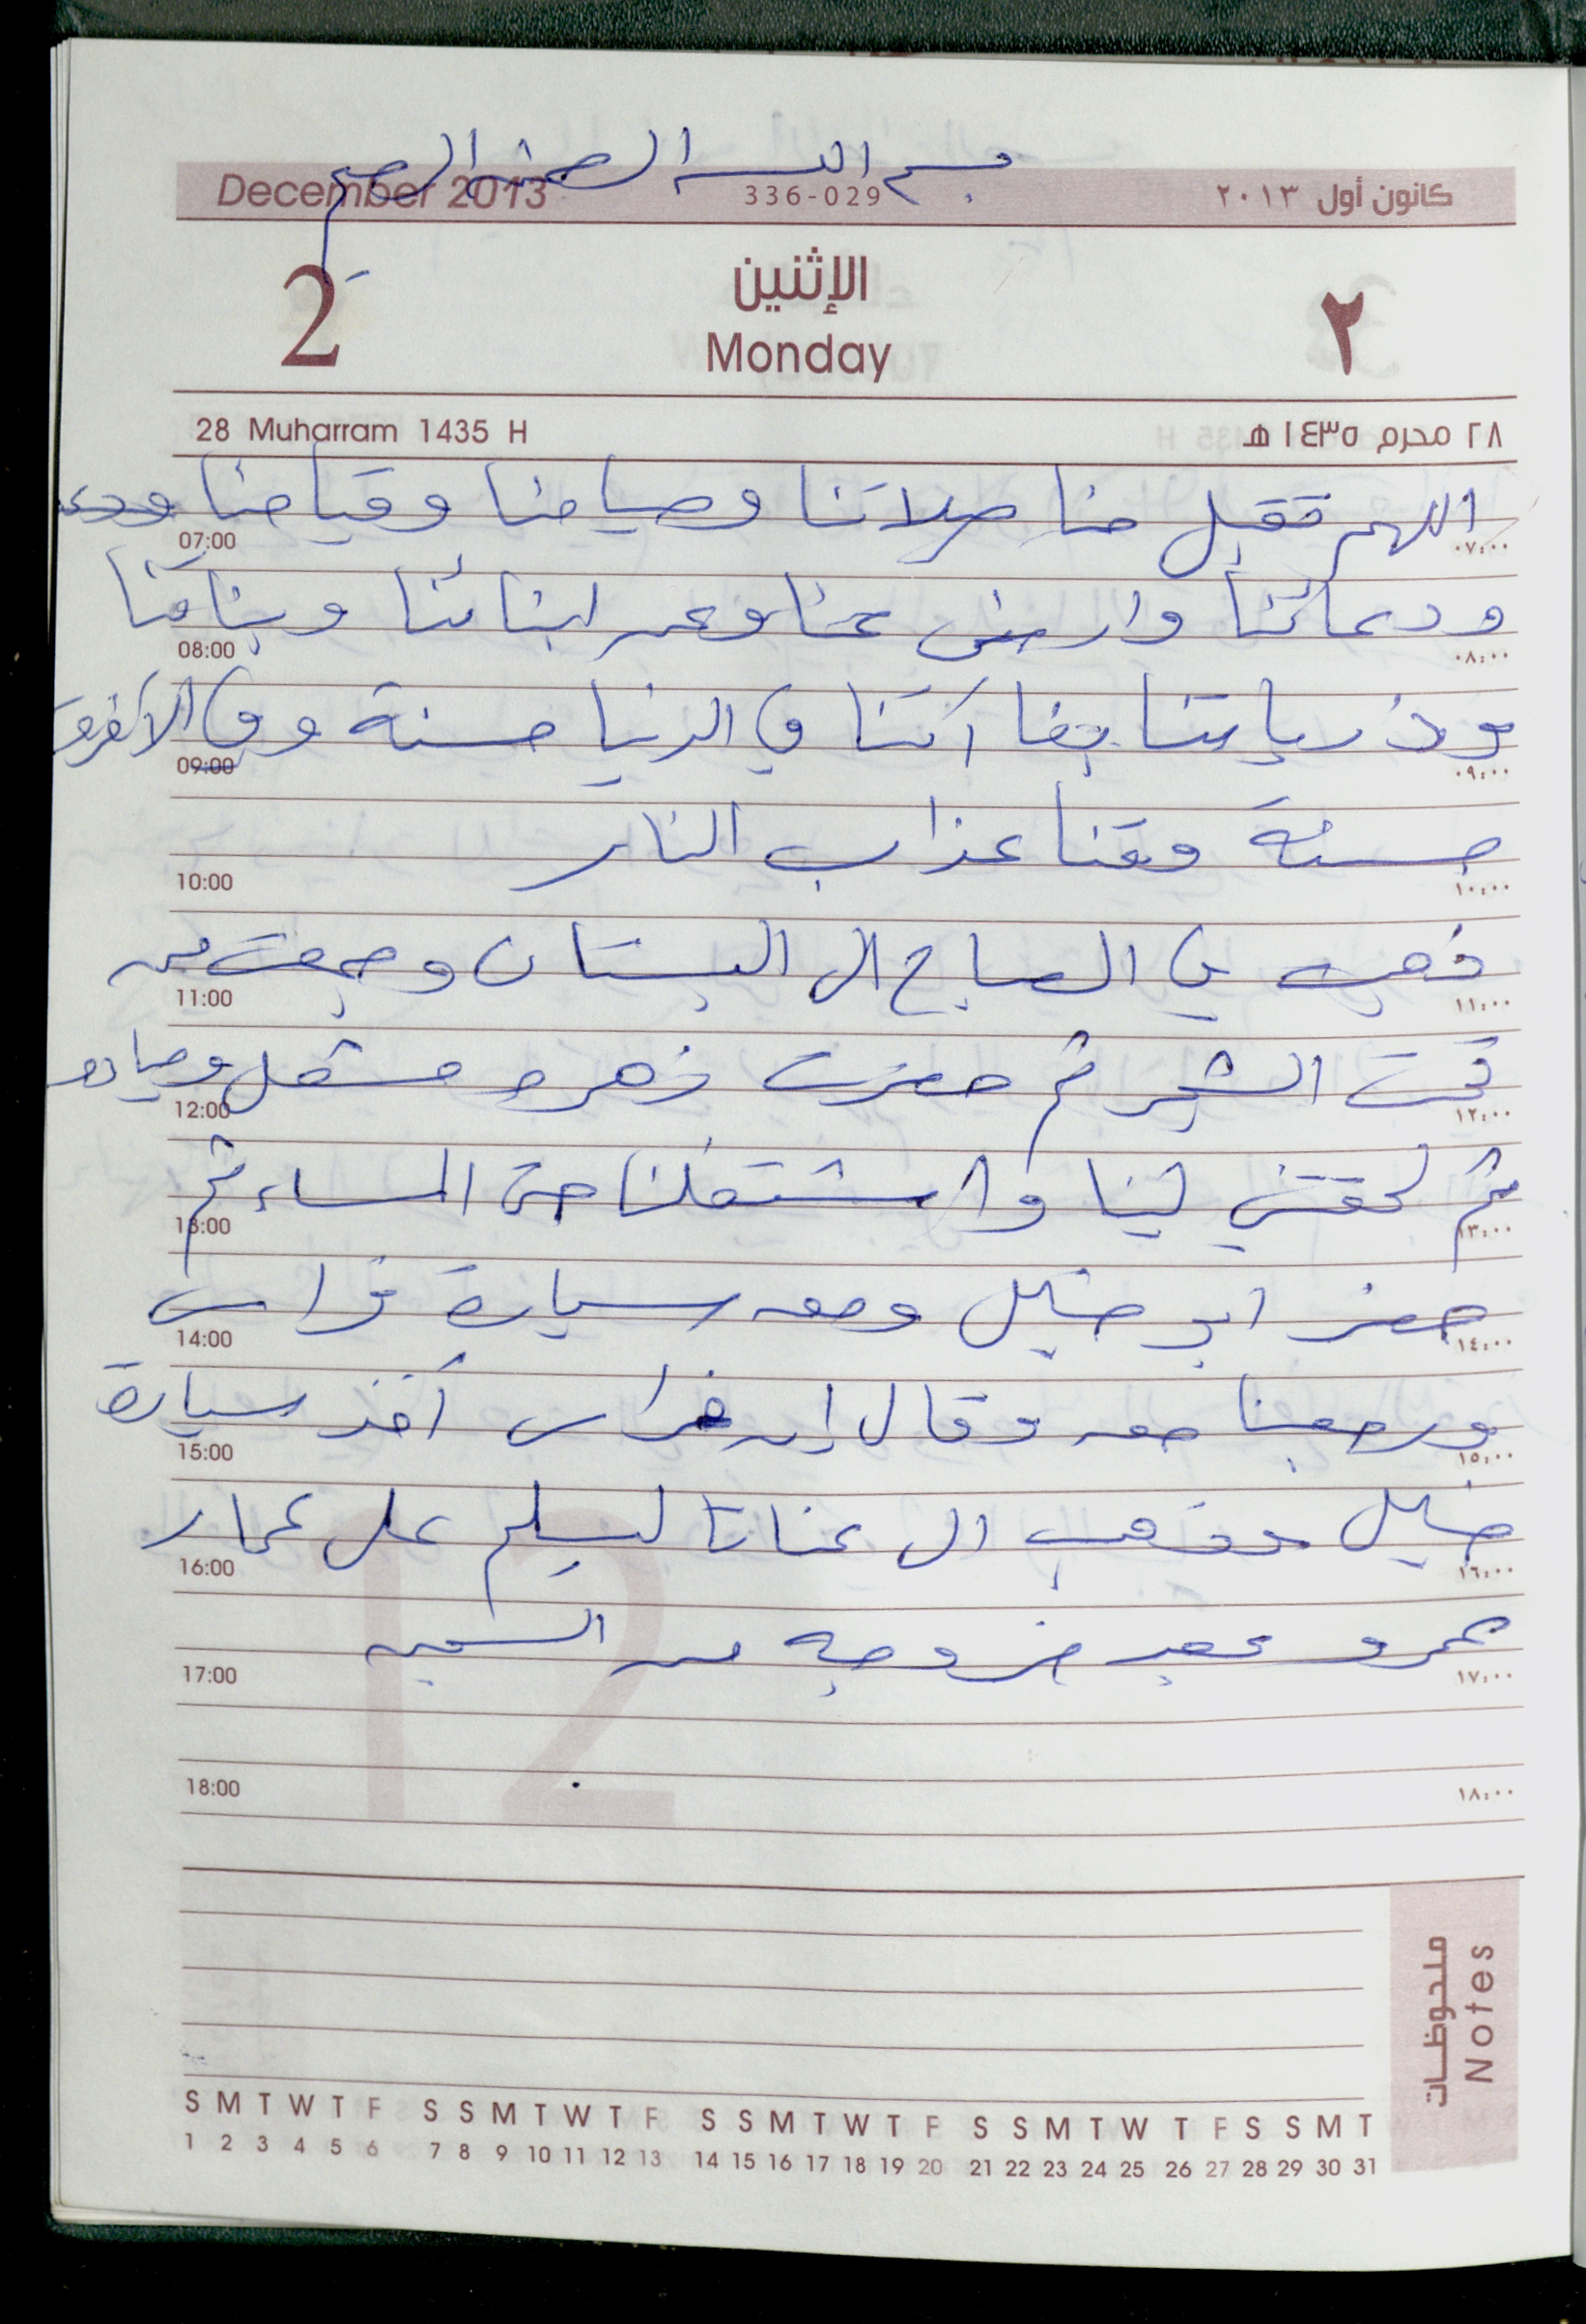 بسم الله الرحمن الرحيم
December 2013 336-029 كانون أول ٢٠١٣
2 الإثنين ٢
Monday
28 Muharram 1435 H ٢٨ محرم ١٤٣٥ هـ
اللهم تقبل منا صلاتنا وصيامنا وقيامنا
07:00 ٠٧:٠٠
ودعائنا وارضى عنا وعن ابنائنا وبناتنا
08:00 ٠٨:٠٠
وذرياتنا ربنا آتنا في الدنيا حسنة وفي الآخرة
09:00 ٠٩:٠٠
حسنة وقنا عذاب النار
10:00 ١٠:٠٠
ذهبت في الصباح الى البستان وجمعت من
11:00 ١١:٠٠
تحت الشجر ثم حضرت زهرة
12:00 ١٢:٠٠
ثم لحقتني لينا واشتغلنا حتى المساء ثم
13:00 ١٣:٠٠
حضر ابو خليل ومعه سيارة فراس
14:00 ١٤:٠٠
ورجعنا معه وقال إن فراس أخذ سيارة
15:00 ١٥:٠٠
خليل وذهب الى عناتا ليسلم على عمار
16:00 ١٦:٠٠
عمرو بعد خروجه من السجن
17:00 ١٧:٠٠
12
18:00 ١٨:٠٠
ملحوظات
Notes
S M T W T F S S M T W T F S S M T W T F S S M T W T F S S M T
1 2 3 4 5 6 7 8 9 10 11 12 13 14 15 16 17 18 19 20 21 22 23 24 25 26 27 28 29 30 31